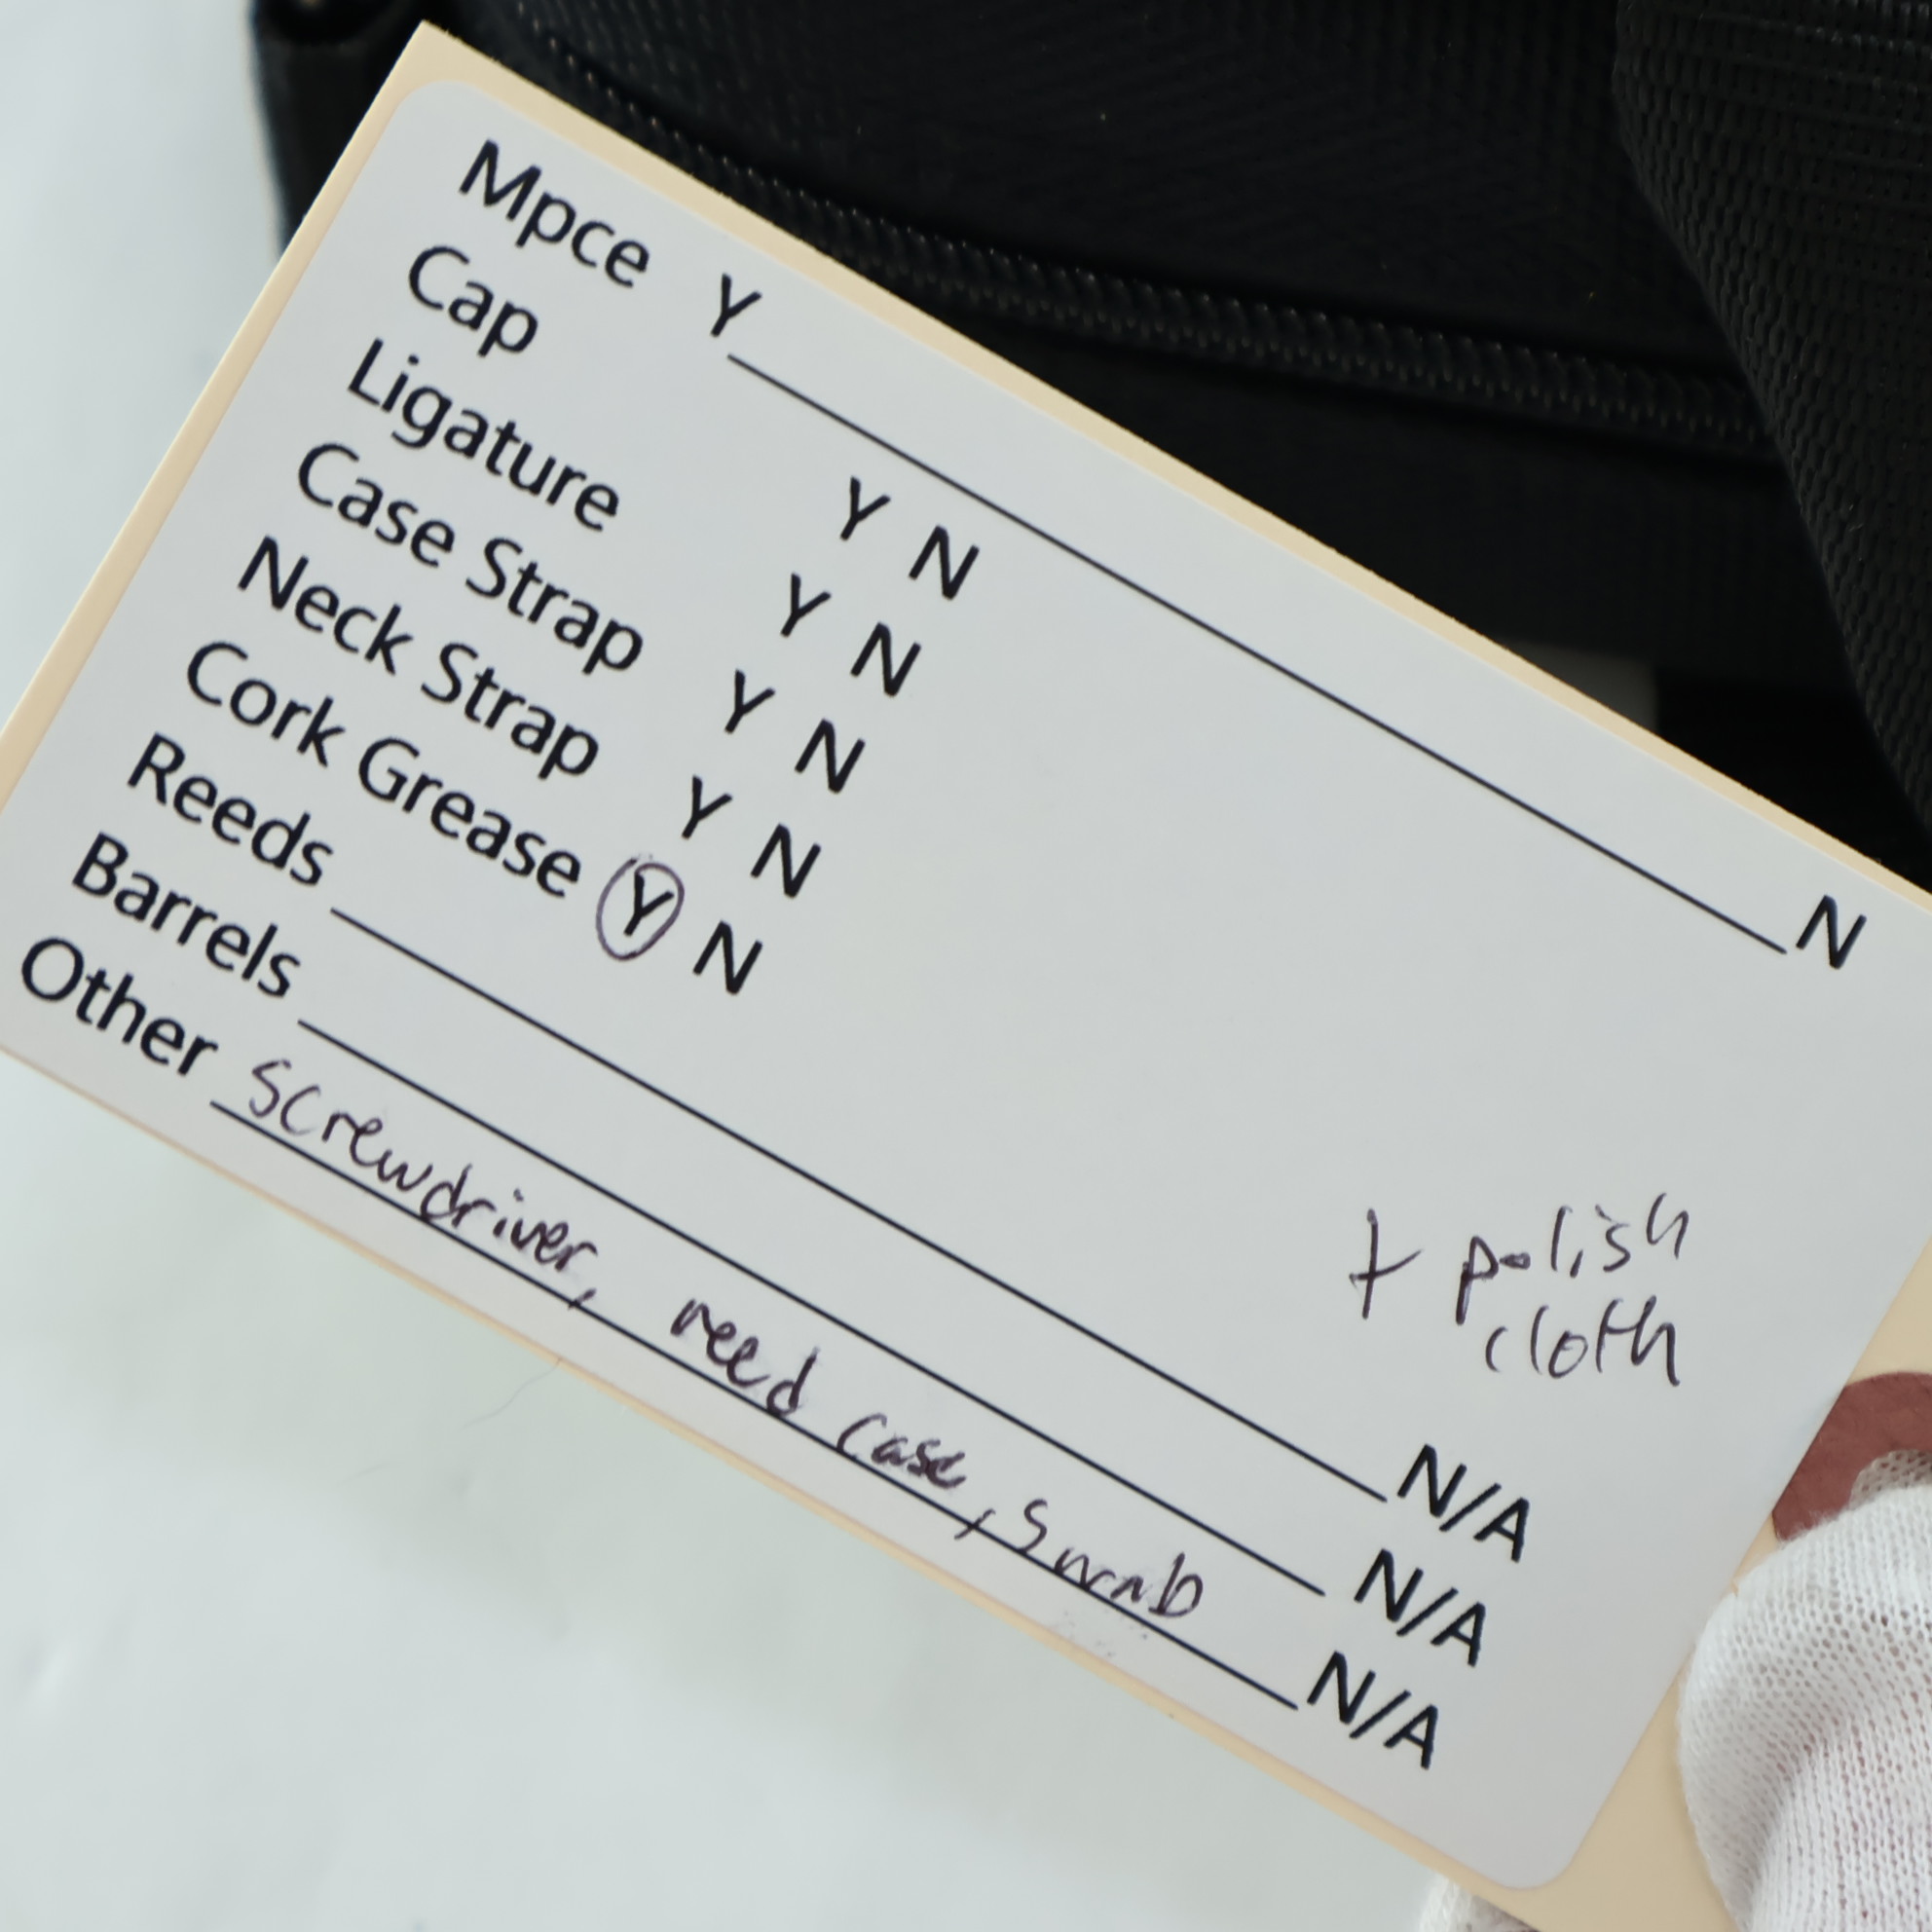 Mpce Y____________________N
Cap Y N
Ligature Y N
Case Strap Y N
Neck Strap Y N
Cork Grease Y N
Reeds ____________________N/A
Barrels ____________________N/A
Other screwdriver, reed case, swab N/A
+ polish
cloth